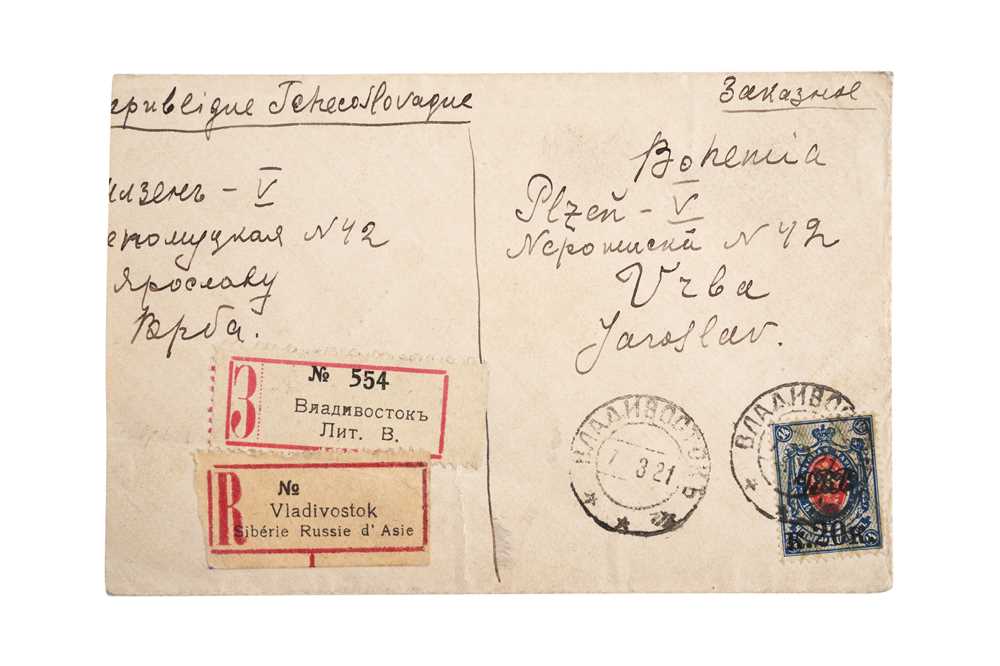 epublique Tchecoslovaque
Заказное
илзенъ - V
епомуцкая N 42
Ярославу
Врба.
Bohemia
Plzeň - V
N 42
Vrba
Jaroslav.
З
№ 554
Владивостокъ
Лит. В.
R
№
Vladivostok
Sibérie Russie d' Asie
1
ВЛАДИВОСТОКЪ
7 3 21
ВЛАДИВОСТО
К. 20 К.